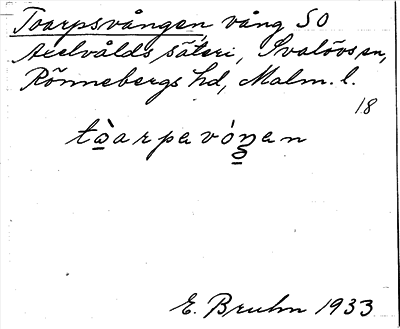 Toarpsvången, vång SO
Axelvålds säteri, Svalövs sn,
Rönnebergs hd, Malm. l.
18
tòarpavóŋen
E. Bruhn 1933